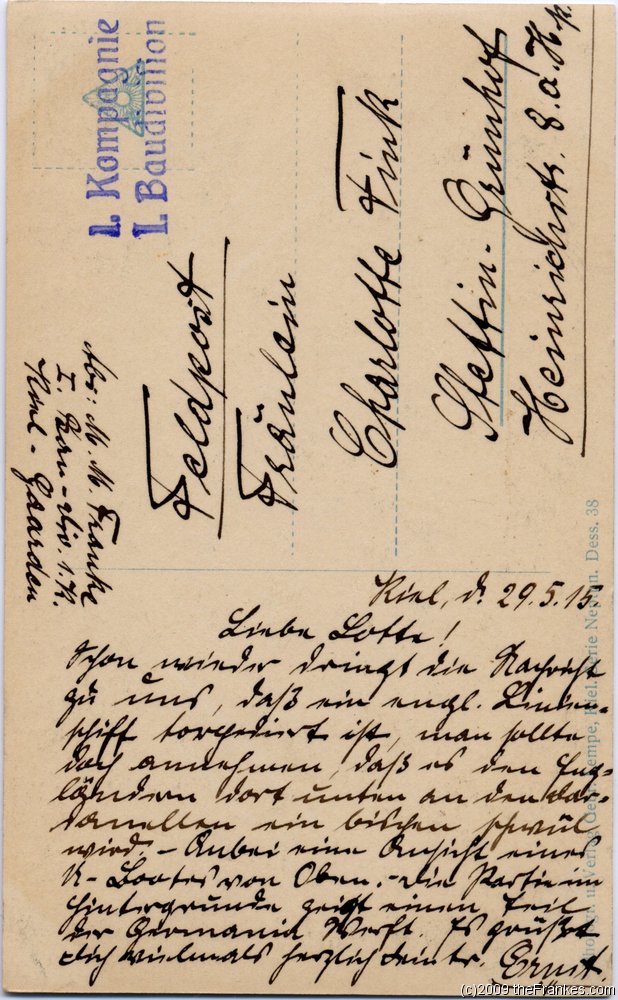 1. Kompagnie
1. Baudivision
Abs: M. M. Franke
I. Bau-Div. 1. K.
Kiel-Gaarden
Feldpost
Fräulein
Charlotte Fink
Stettin-Grünhof
Heinrichstr. 8.a.
Kiel, d. 29.5.15.
Liebe Lotte!
Schon wieder dringt die Nachricht
zu uns, daß ein engl. Linien-
schiff torpediert ist, man sollte
doch annehmen, daß es den Eng-
ländern dort unten an den Dar-
danellen ein bischen schwül
wird. - Anbei eine Ansicht eines
U-Bootes von Oben. - Die Partie im
Hintergrunde zeigt einen Teil
der Germania Werft. Es grüßt
Dich vielmals herzlich
Ernst.
Dess. 38
(c)2009 theFrankes.com